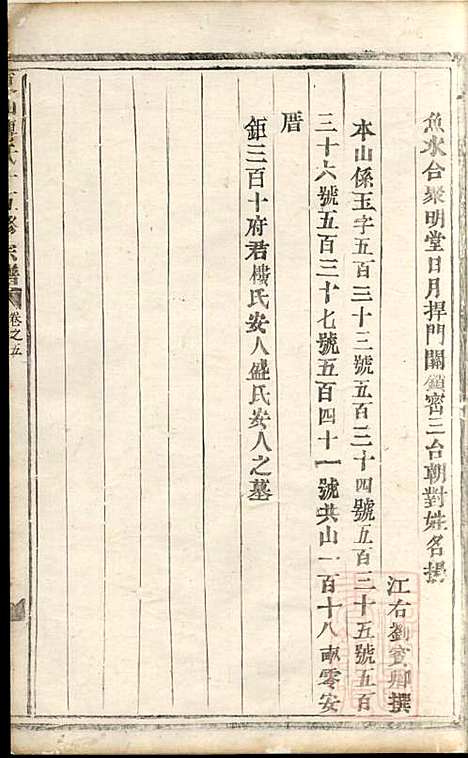 魚水合聚明堂日月捍門關鎖密三台朝對姓名揚
江右劉賓卿撰
本山係玉字五百三十三號五百三十四號五百三十五號五百
三十六號五百三十七號五百四十一號共山一百十八畝零安
厝
鉅三百十府君樓氏安人盛氏安人之墓
氏十五修宗譜
卷之五